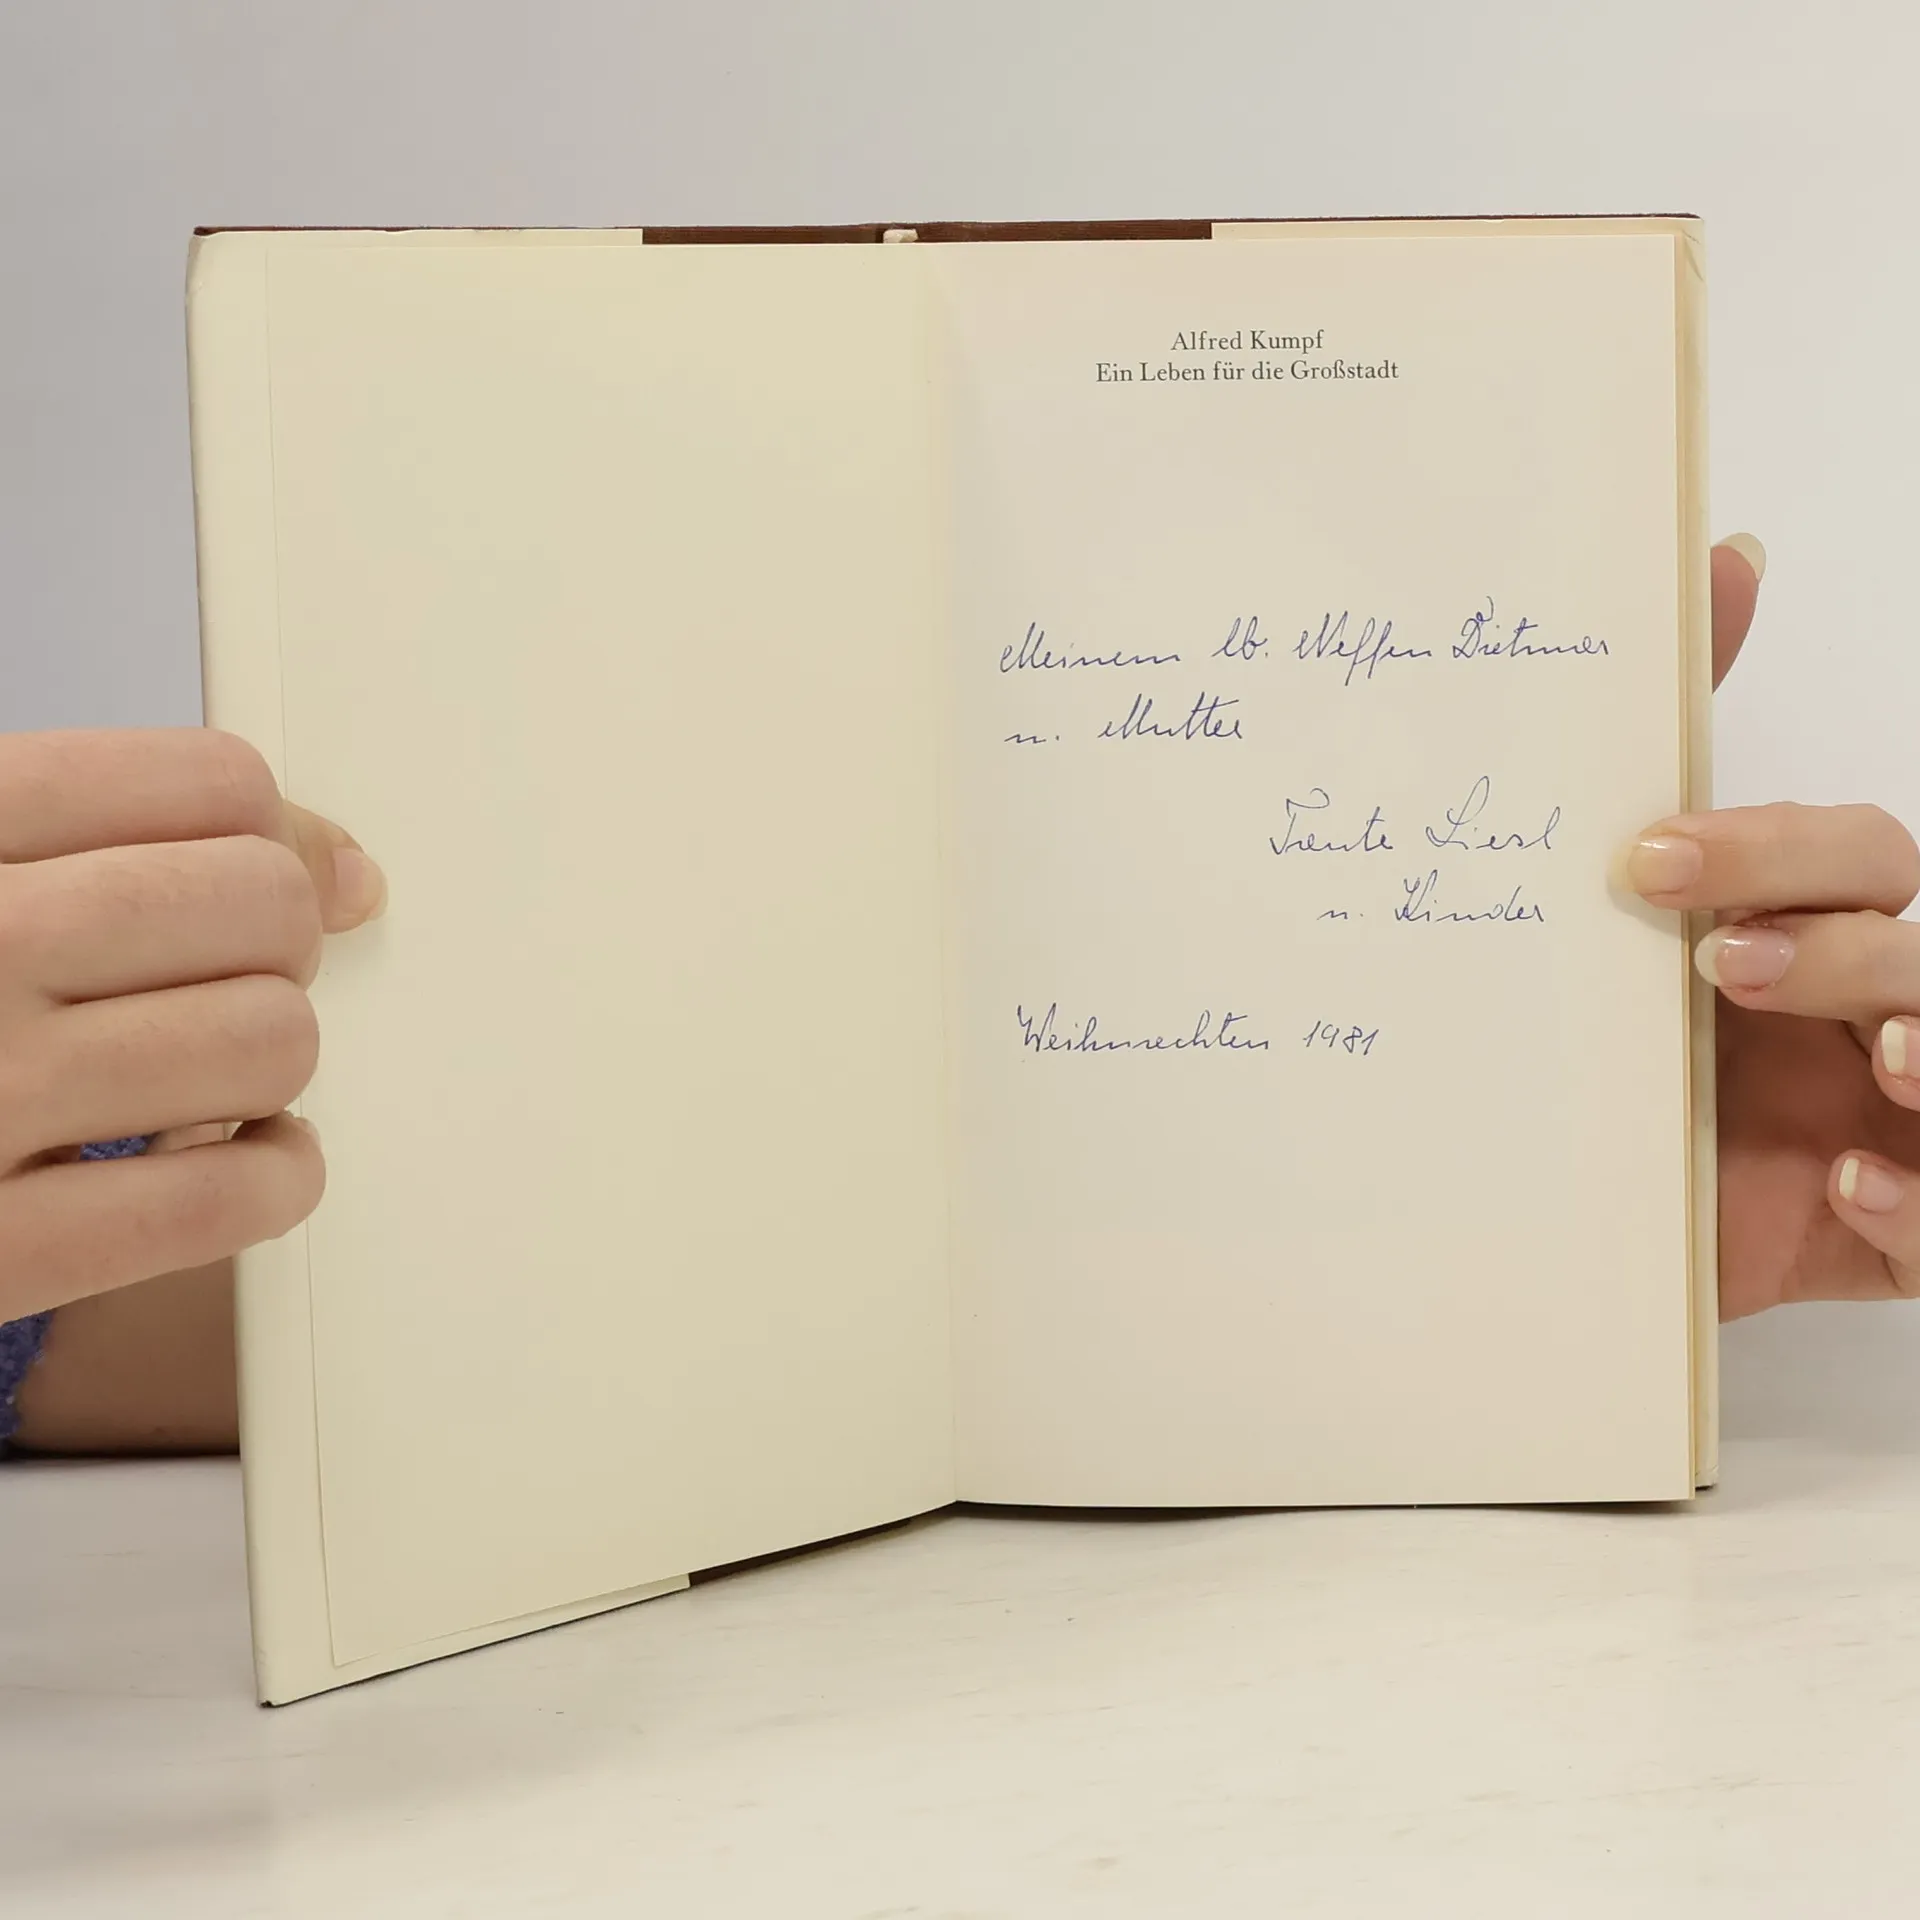 Alfred Kumpf
Ein Leben für die Großstadt
Meinem lb. Neffen Dietmar
u. Mutter
Tante Liesl
u. Kinder
Weihnachten 1981